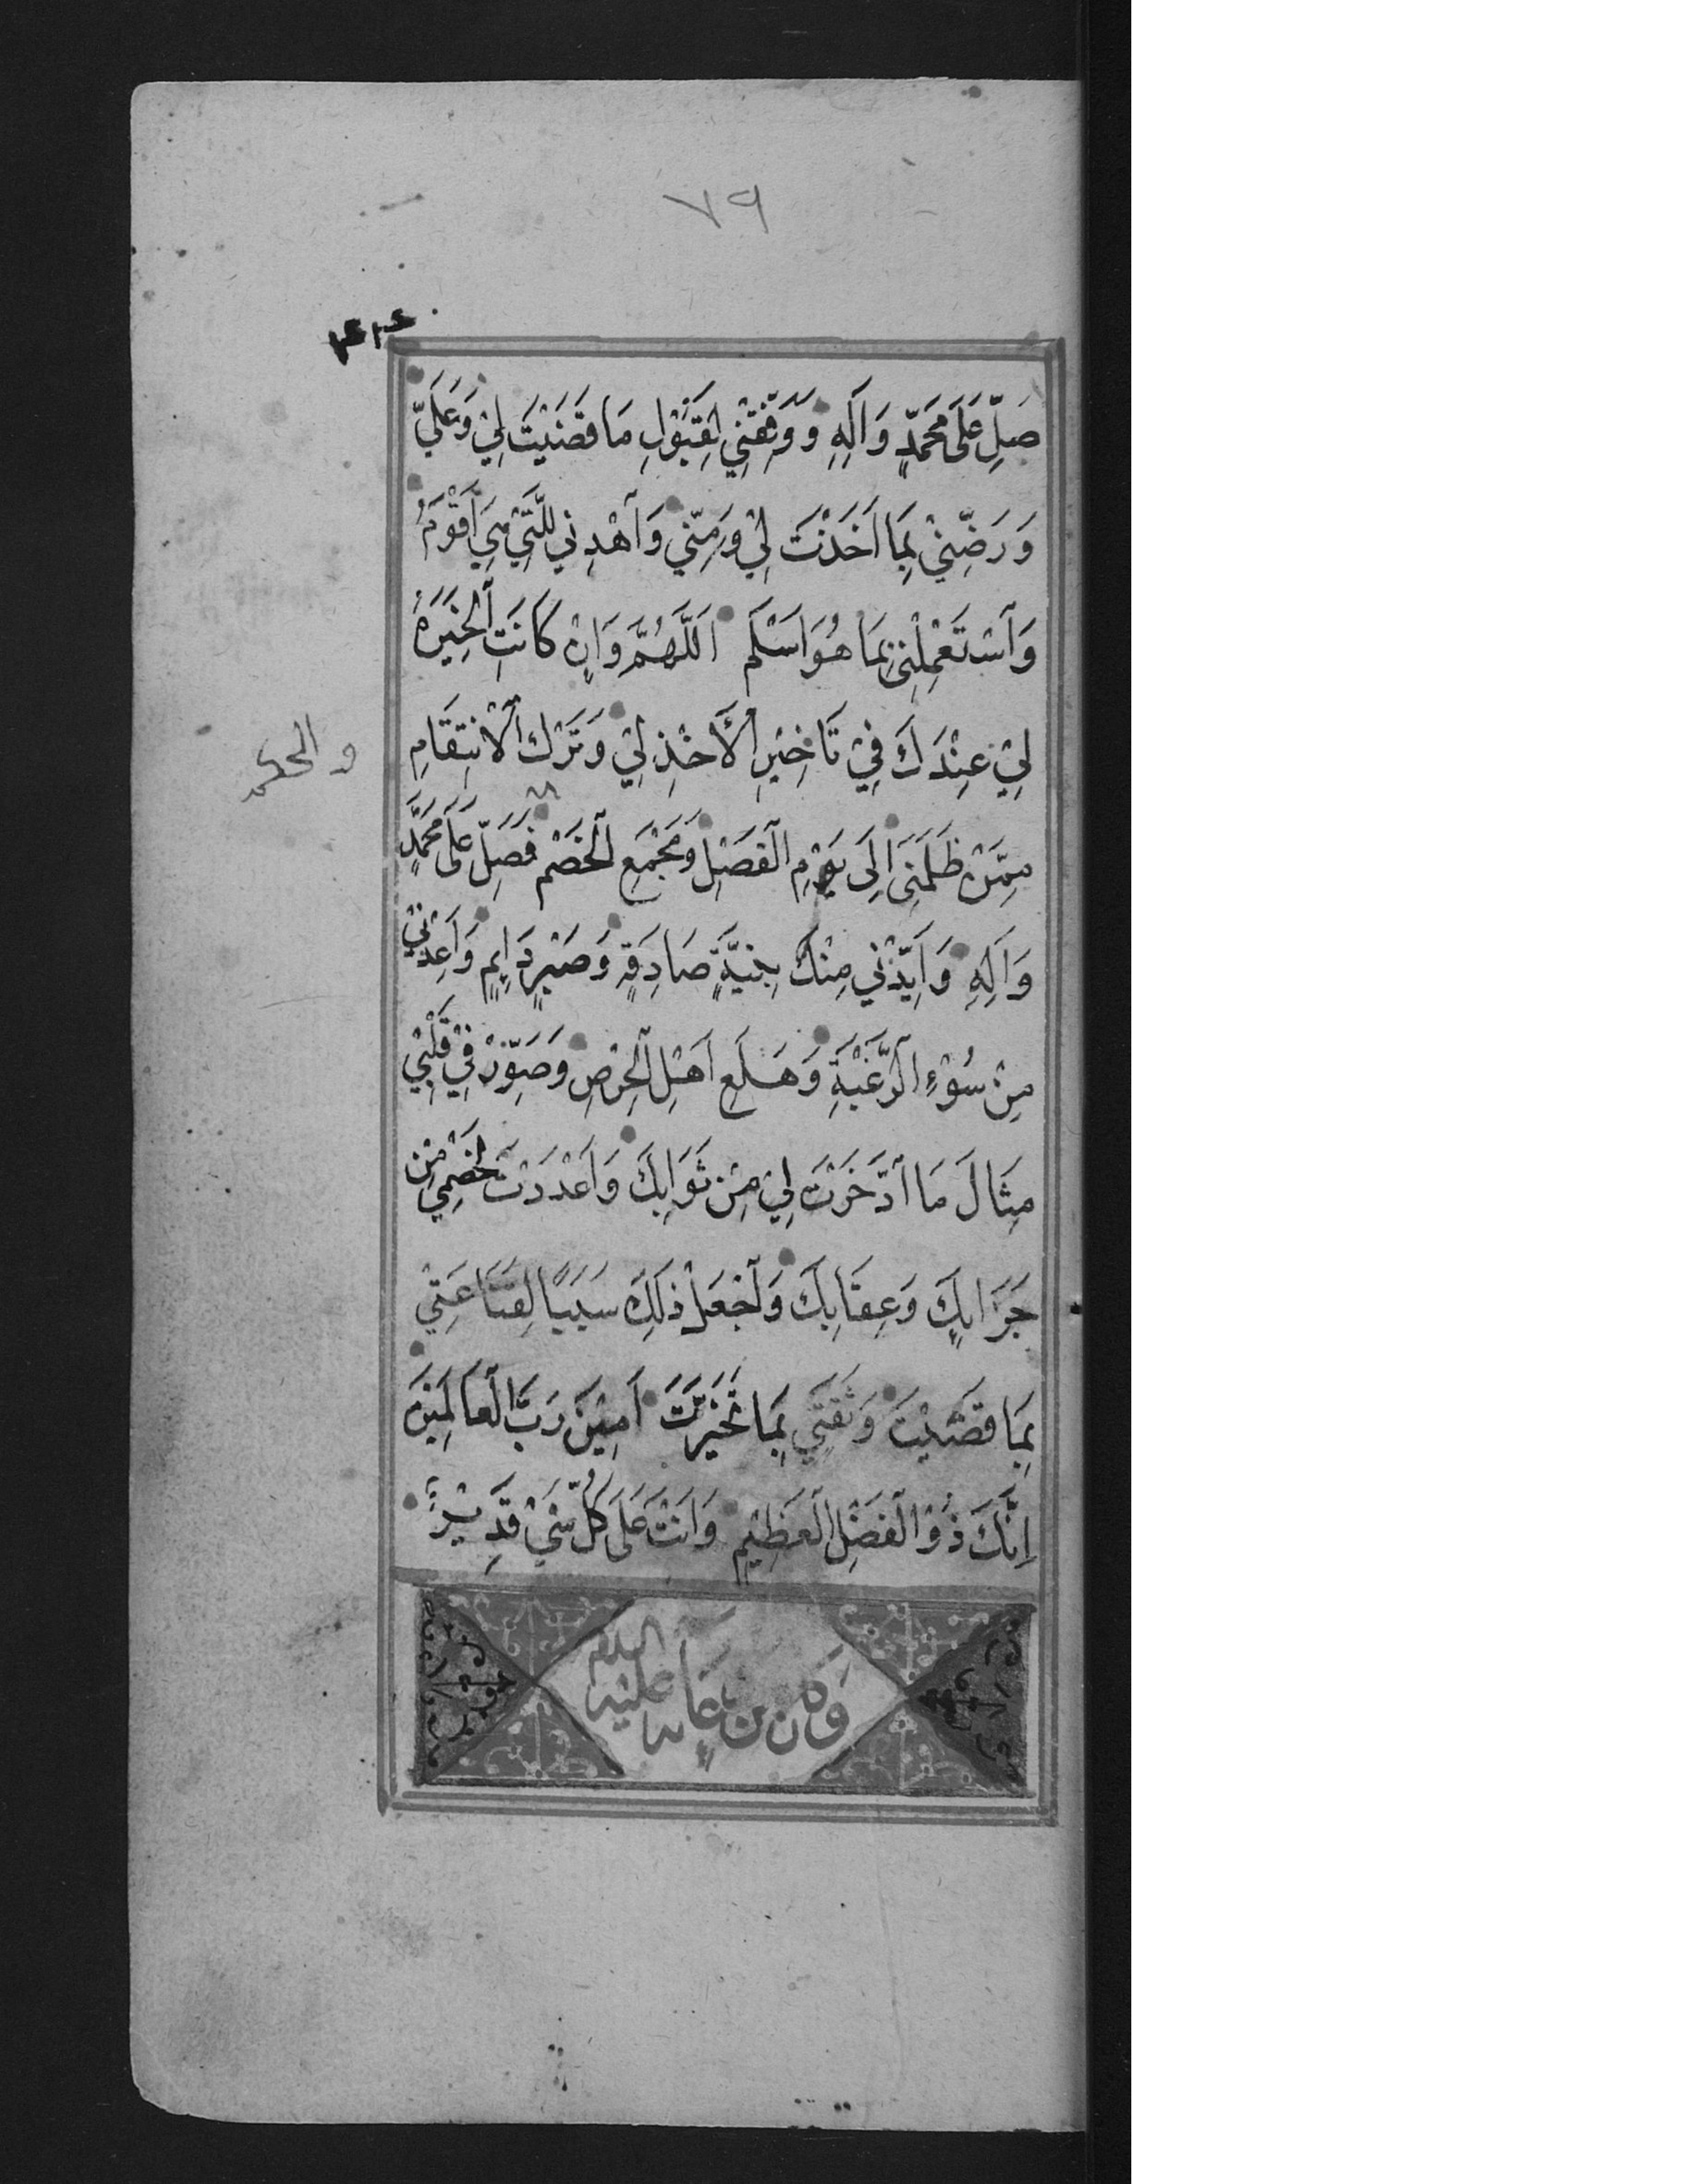 ٧٩
صَلِّ عَلَى مُحَمَّدٍ وَآلِهِ وَوَفِّقْنِي لِقَبُولِ مَا قَضَيْتَ لِيْ وَعَلَيَّ
وَرَضِّنِيْ بِمَا اَخَذْتَ لِيْ وَمِنِّي وَاهْدِنِي لِلَّتِيْ هِيَ اَقْوَمُ
وَاسْتَعْمِلْنِي بِمَا هُوَ اَسْلَم اَللَّهُمَّ وَاِنْ كَانَتِ الْخِيَرَةُ
لِيْ عِنْدَكَ فِيْ تَاخِيْرِ الْأَخْذِ لِيْ وَتَرْكِ الْاِنْتِقَامِ
مِمَّنْ ظَلَمَنِي اِلَى يَوْمِ الْفَصْلِ وَمَجْمَعِ الْخَصْمِ فَصَلِّ عَلَى مُحَمَّدٍ
والحكم
وَآلِهِ وَاَيِّدْنِي مِنْكَ بِنِيَّةٍ صَادِقَةٍ وَصَبْرٍ دَايِمٍ وَاَعِذْنِيْ
مِنْ سُوْءِ الرَّغْبَةِ وَهَلَعِ اَهْلِ الْحِرْصِ وَصَوِّرْ فِيْ قَلْبِيْ
مِثَالَ مَا ادَّخَرْتَ لِيْ مِنْ ثَوَابِكَ وَاَعْدَدْتَ لِخَصْمِيْ مِنْ
جَزَايِكَ وَعِقَابِكَ وَاجْعَلْ ذٰلِكَ سَبَبًا لِقَنَاعَتِيْ
بِمَا قَضَيْتَ وَثِقَتِي بِمَا تَخَيَّرْتَ اٰمِيْنَ رَبَّ الْعَالَمِيْنَ
اِنَّكَ ذُوْ الْفَضْلِ الْعَظِيْمِ وَاَنْتَ عَلَى كُلِّ شَيْ قَدِيْرٌ
وَكَانَ مِنْ دُعَائِهِ عَلَيْهِ السلام